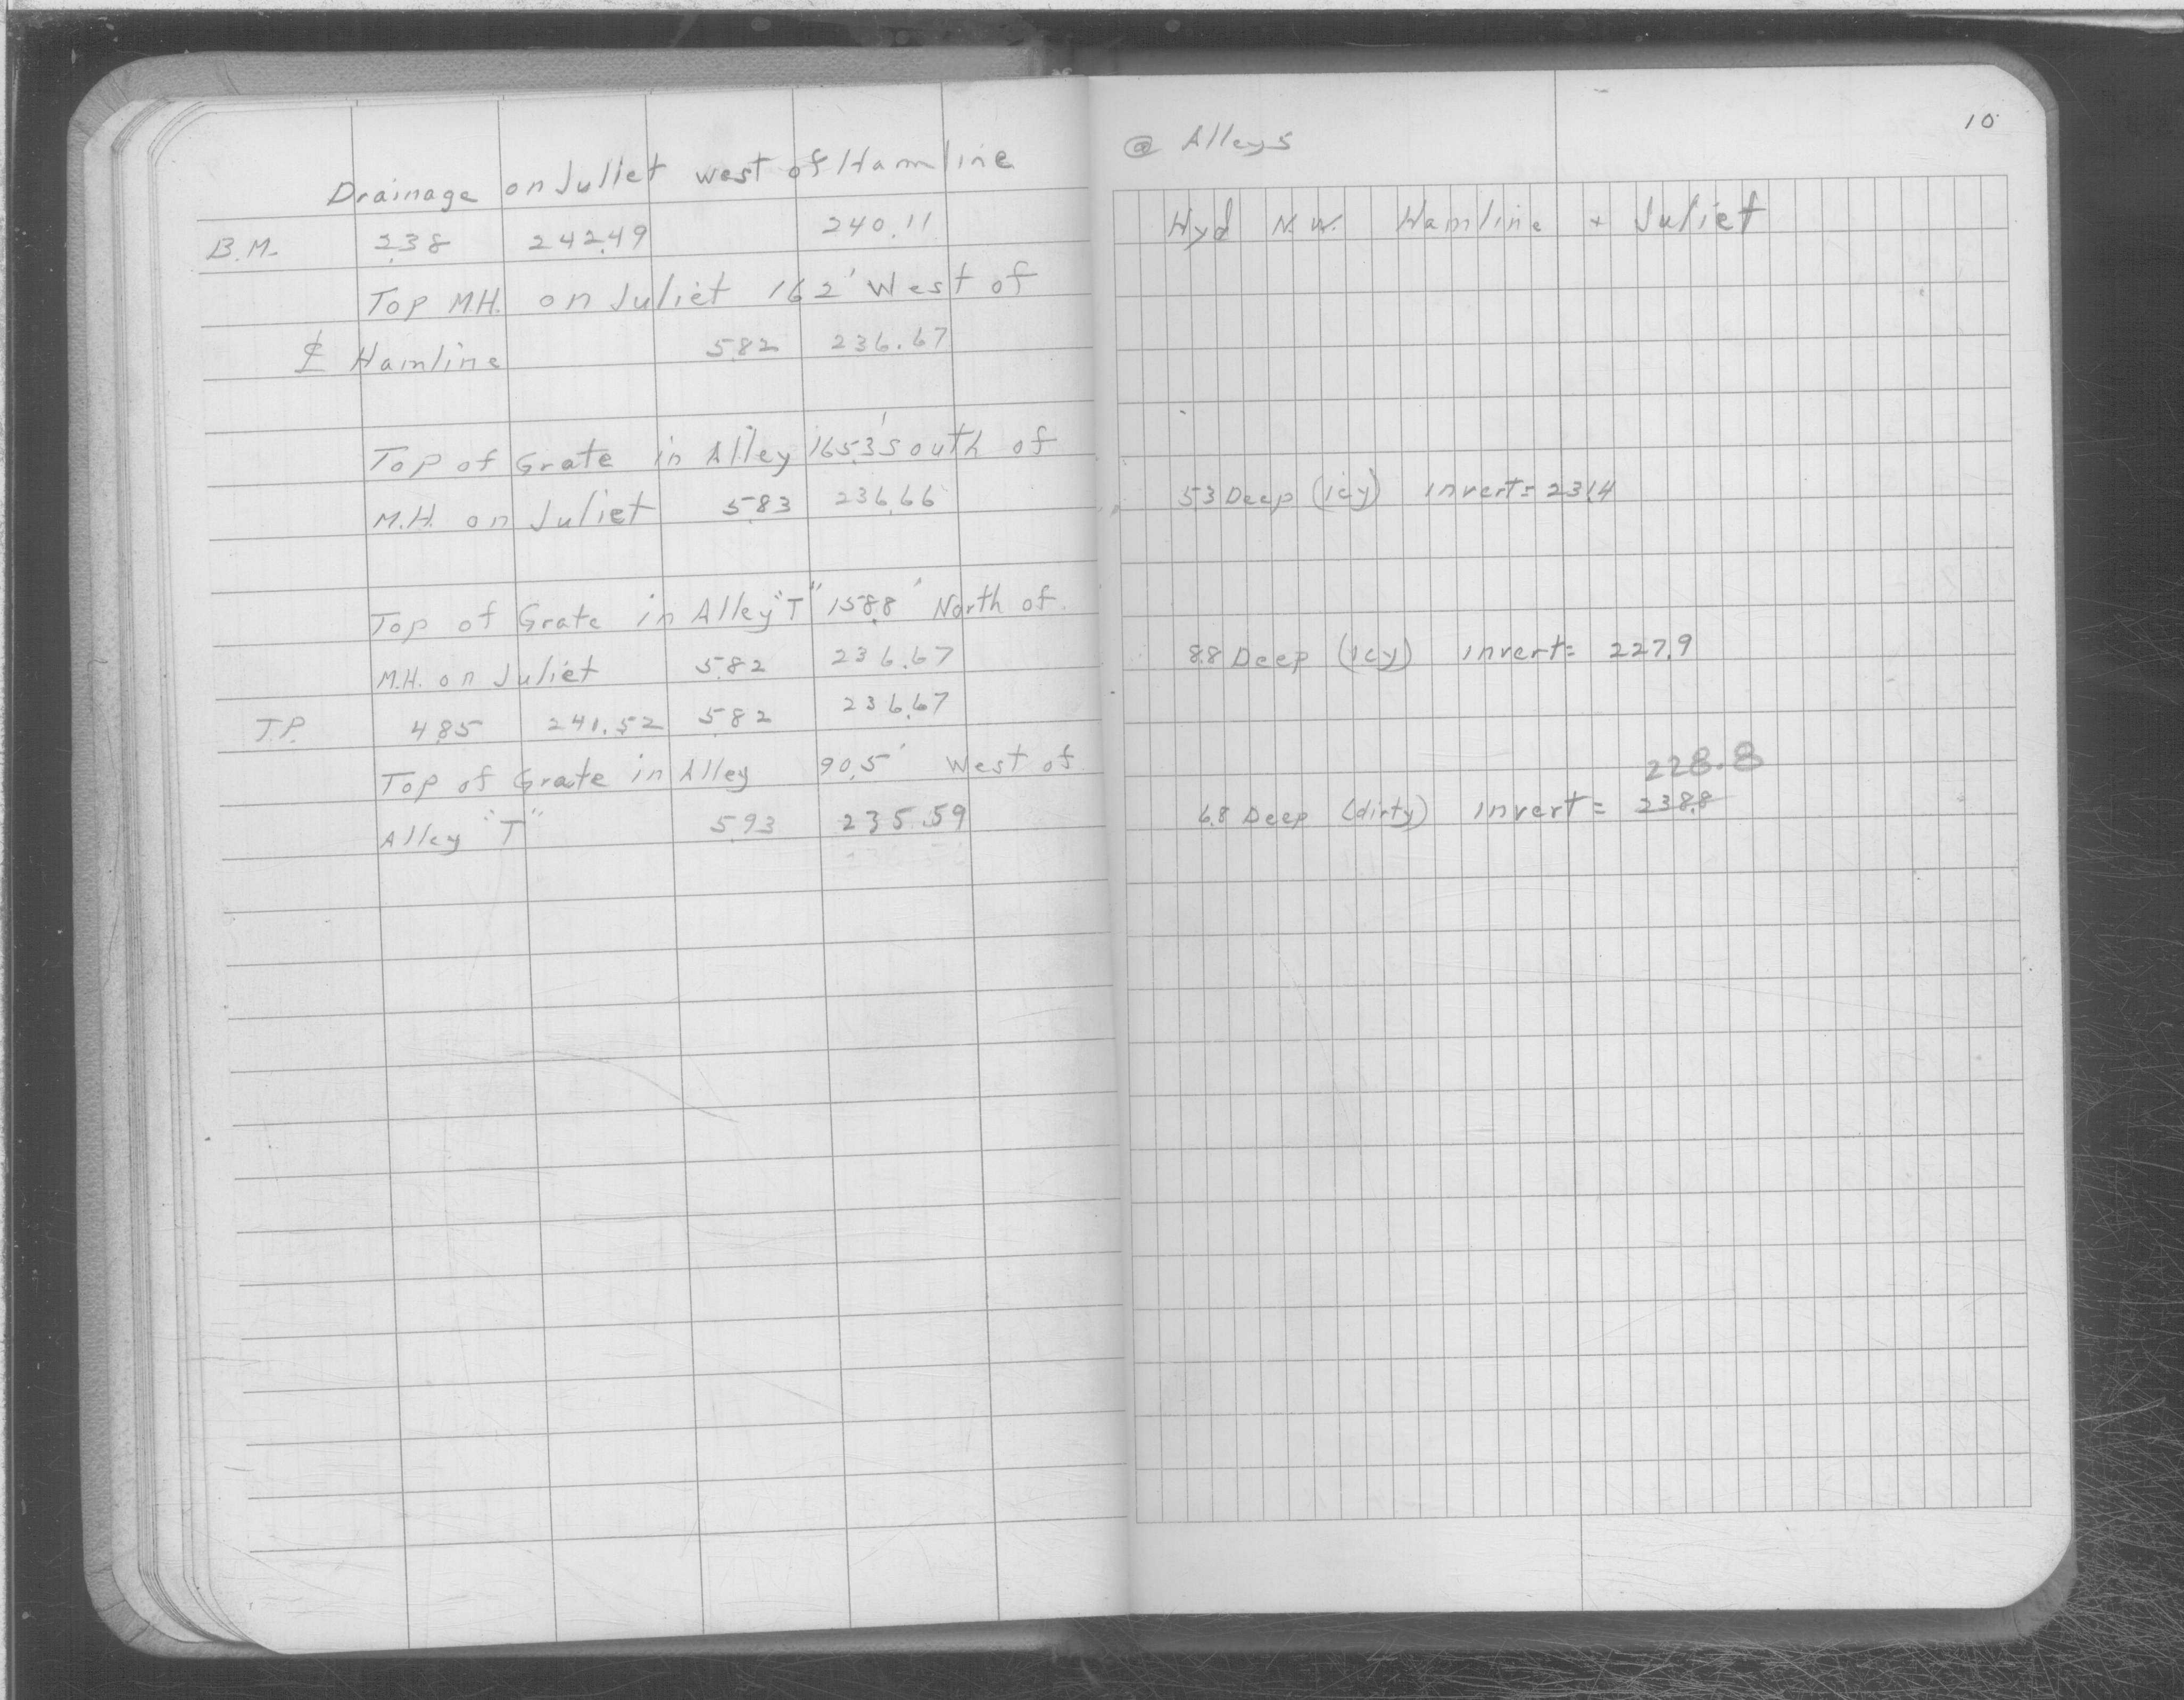 Drainage on Juliet west of Hamline
B.M. 2.38 242.49 240.11
Top M.H. on Juliet 162' West of
℄ Hamline 5.82 236.67
Top of Grate in Alley 165.3' South of
M.H. on Juliet 5.83 236.66
Top of Grate in Alley "T" 158.8' North of
M.H. on Juliet 5.82 236.67
T.P. 4.85 241.52 5.82 236.67
Top of Grate in Alley 90.5' West of
Alley "T" 5.93 235.59
10
@ Alleys
Hyd N.W. Hamline + Juliet
5.3 Deep (icy) invert = 231.4
8.8 Deep (icy) invert = 227.9
228.8
6.8 Deep (dirty) invert = 238.8